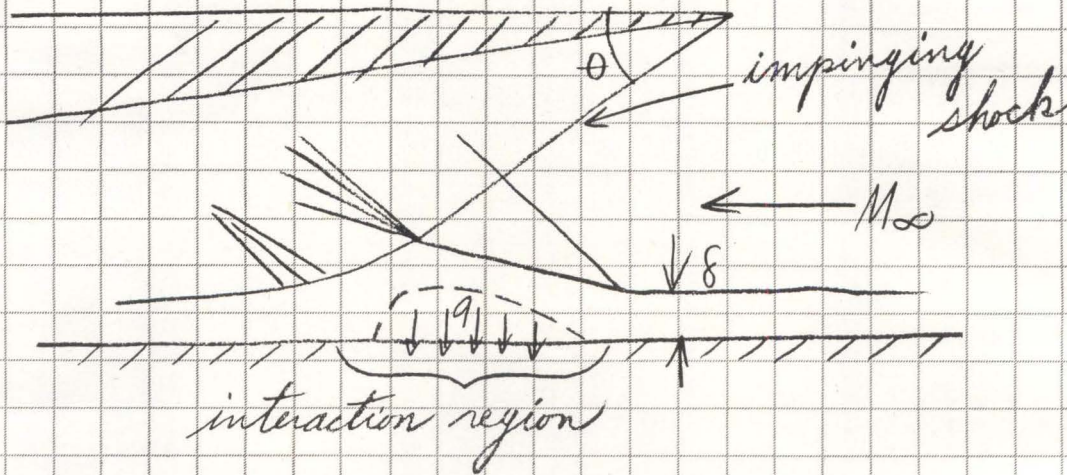 θ
impinging
shock
M∞
δ
q
interaction region